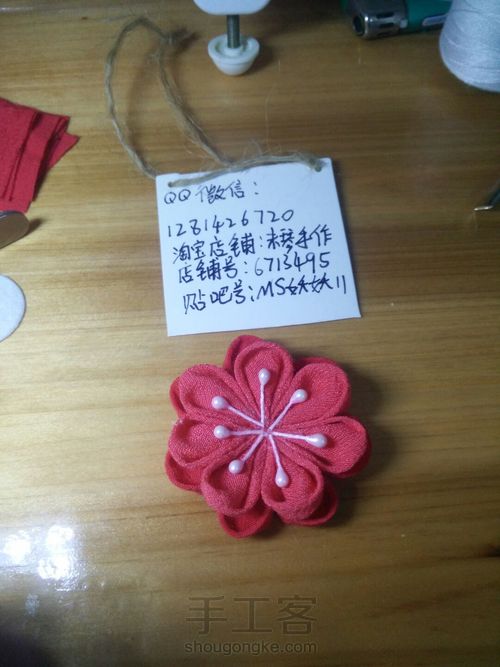 QQ 微信:
1281426720
淘宝店铺:木琴手作
店铺号:6713495
贴吧号:MS妖妖11
手工客
shougongke.com